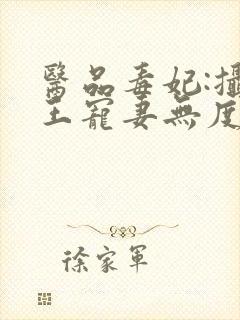 醫品毒妃:攝
王寵妻無度
徐家軍